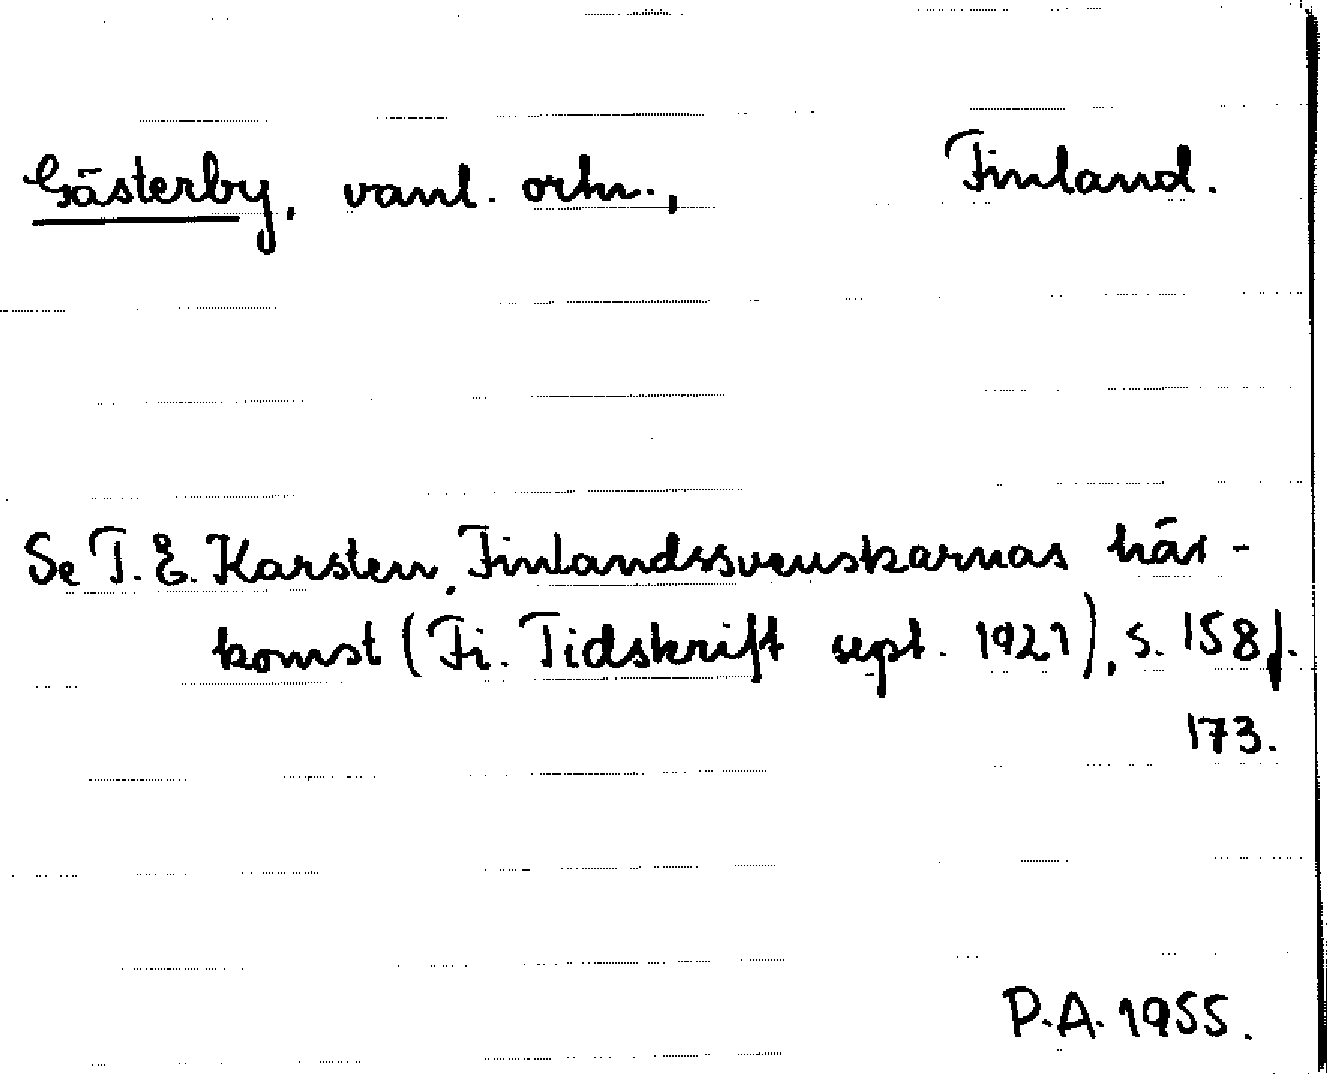 Gästerby, vanl. ortn., Finland.
Se T. E. Karsten, Finlandssvenskarnas här-
komst (Fi. Tidskrift sept. 1921), s. 158 f.
173.
P.A. 1955.